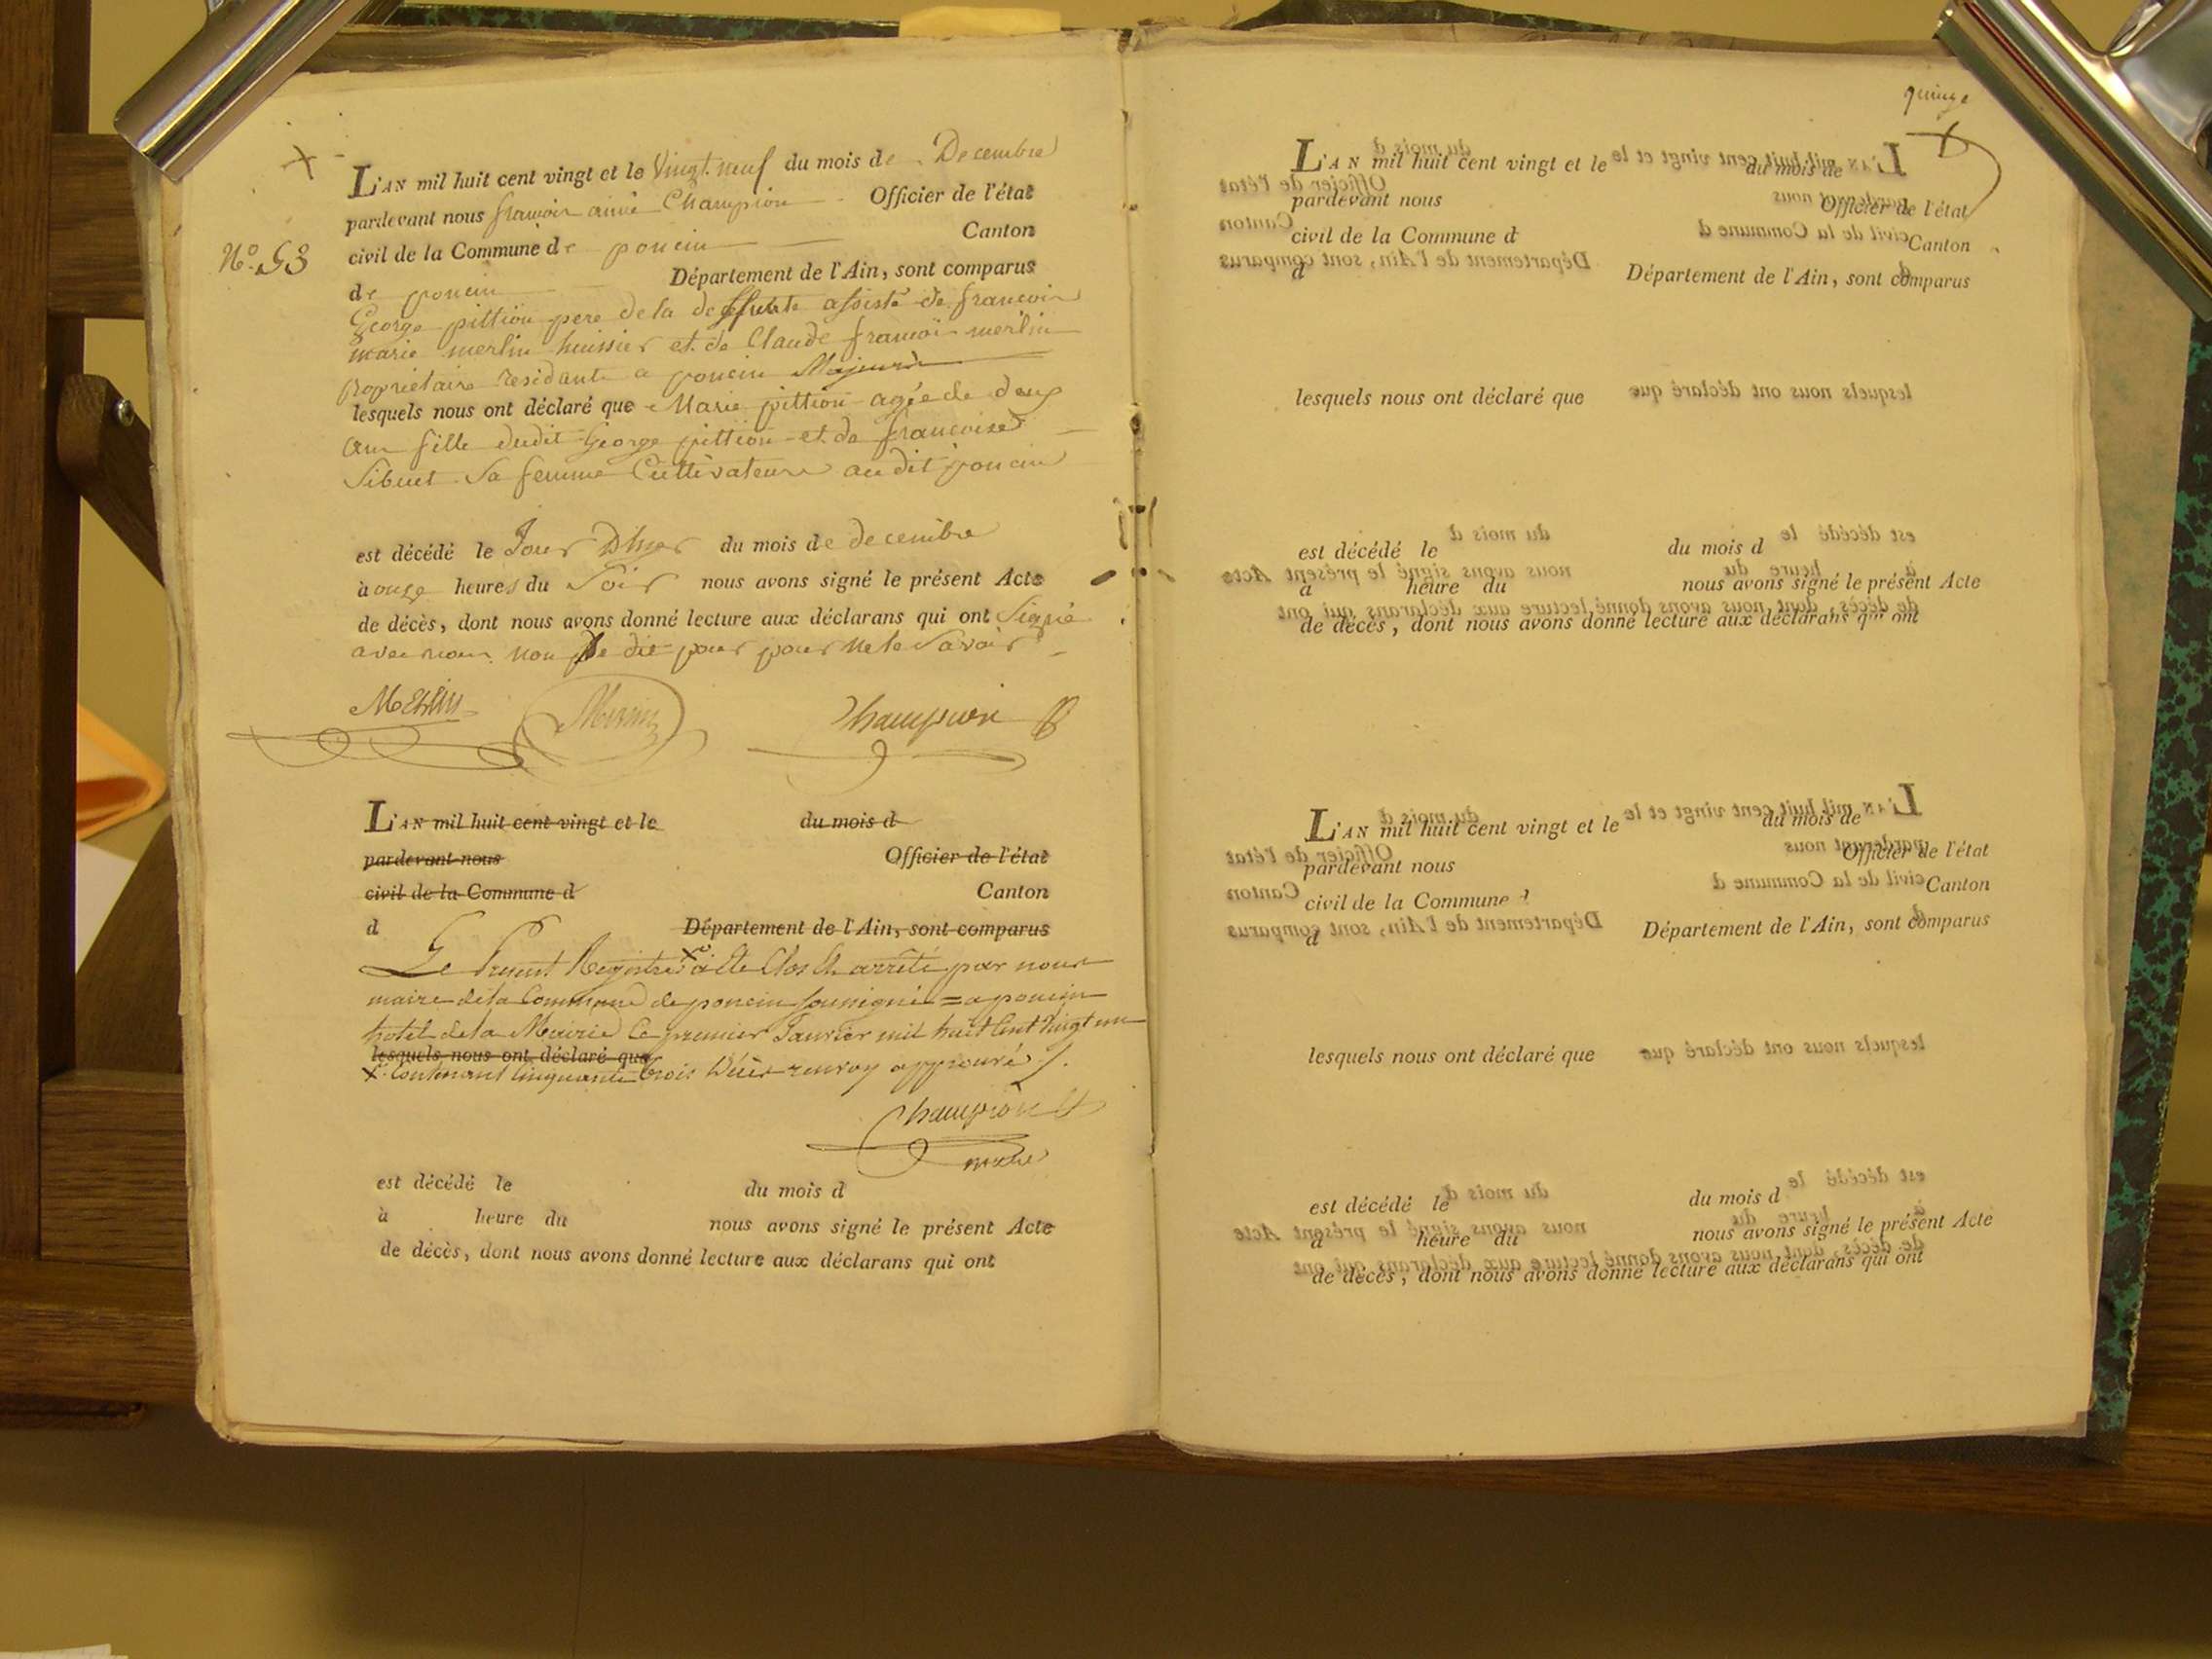 L'AN mil huit cent vingt et le Vingt neuf du mois de Decembre
pardevant nous francois aimé Champion Officier de l'état
N.º 53
civil de la Commune de poncin Canton
de poncin Département de l'Ain, sont comparus
George pittion pere de la deffunte assisté de francois
marie merlin huissier et de Claude francois merlin
propriétaire residants a poncin Majeurs
lesquels nous ont déclaré que Marie pittion agée de deux
ans fille dudit George pittion et de francoise
Sibuet sa femme Cultivateurs audit poncin
est décédé le Jour D'hier du mois de decembre
à onze heures du Soir nous avons signé le présent Acte
de décès, dont nous avons donné lecture aux déclarans qui ont Signé
avec nous non le dit pour pour ne le Savoir
Merlin Merlin Champion
L'AN mil huit cent vingt et le du mois d
pardevant nous Officier de l'état
civil de la Commune d Canton
d Département de l'Ain, sont comparus
Le Present Registre x a été Clos et arrété par nous
maire de la Commune de poncin soussigné = a poncin
hotel de la Mairie le premier Janvier mil huit Cent Vingt un
lesquels nous ont déclaré que
x Contenant Cinquante trois Décès renvoy approuvé
Champion
maire
est décédé le du mois d
à heure du nous avons signé le présent Acte
de décès, dont nous avons donné lecture aux déclarans qui ont
quinze
L'AN mil huit cent vingt et le du mois de
pardevant nous Officier de l'état
civil de la Commune d Canton
d Département de l'Ain, sont comparus
lesquels nous ont déclaré que
est décédé le du mois d
à heure du nous avons signé le présent Acte
de décès, dont nous avons donné lecture aux déclarans qui ont
L'AN mil huit cent vingt et le du mois de
pardevant nous Officier de l'état
civil de la Commune d Canton
d Département de l'Ain, sont comparus
lesquels nous ont déclaré que
est décédé le du mois d
à heure du nous avons signé le présent Acte
de décès, dont nous avons donné lecture aux déclarans qui ont